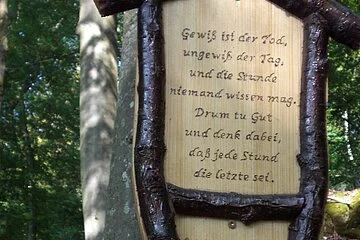 Gewiß ist der Tod,
ungewiß der Tag,
und die Stunde
niemand wissen mag.
Drum tu Gut
und denk dabei,
daß jede Stund
die letzte sei.